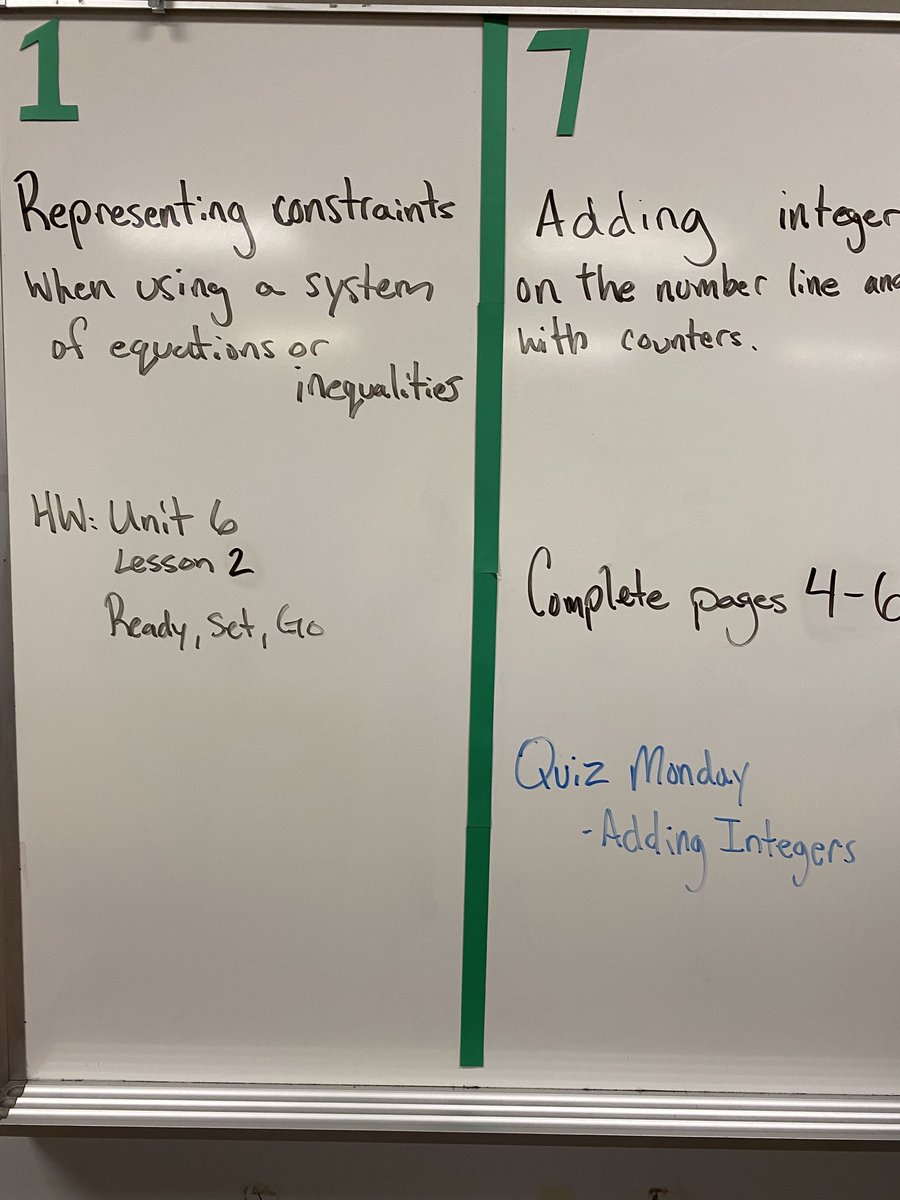 1
Representing constraints
when using a system
of equations or
inequalities
HW: Unit 6
Lesson 2
Ready, Set, Go
7
Adding integer
on the number line and
with counters.
Complete pages 4-6
Quiz Monday
-Adding Integers